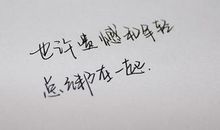 也许遗憾和年轻
总绑在一起.